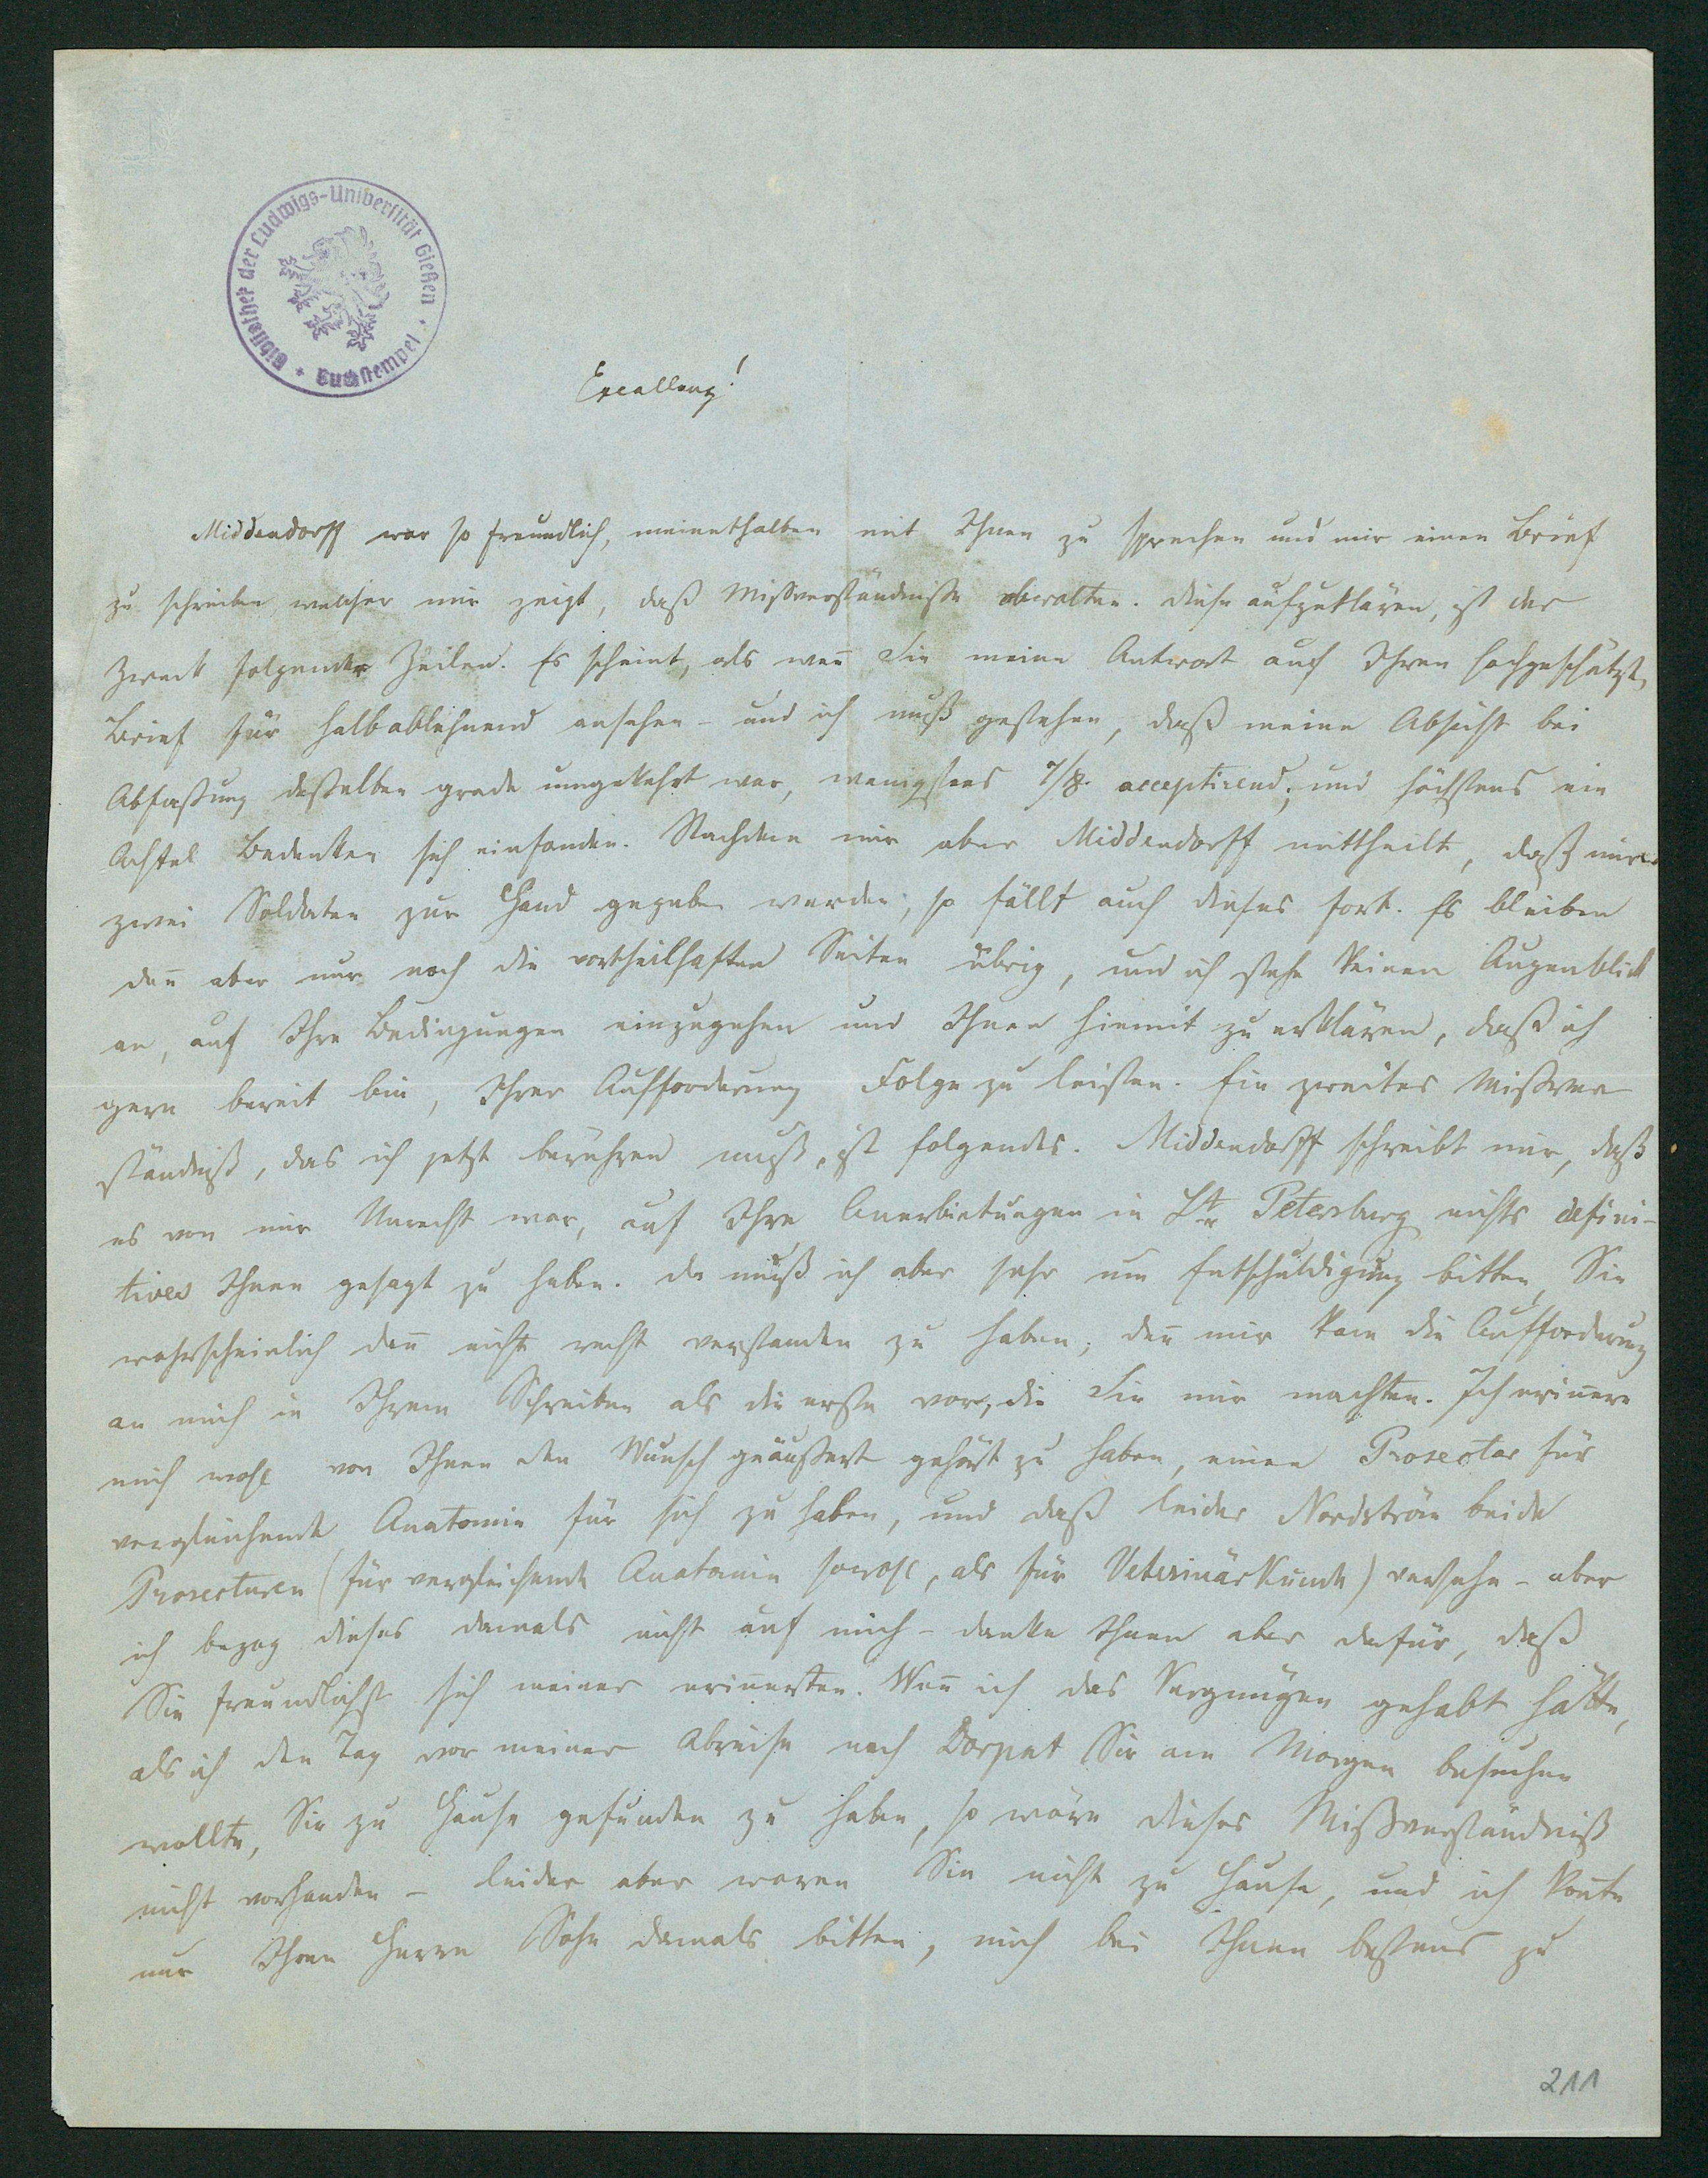 Bibliothek der Ludwigs-Universität Gießen * Buchstempel *
Excellenz!
Middendorff war so freundlich, meinethalben mit Ihnen zu sprechen und mir einen Brief
zu schreiben, welcher mir zeigt, daß Mißverständniße obwalten. Diese aufzuklären, ist der
Zweck folgender Zeilen. Es scheint, als weñ Sie meine Antwort auf Ihren hochgeschätzt
Brief für halbablehnend ansehen – und ich muß gestehen, daß meine Absicht bei
Abfaßung deßelben grade umgekehrt war, wenigstens 7/8 acceptirend, und höchstens ein
Achtel Bedenken sich einfanden. Nachdem mir aber Middendorff mittheilt, daß mir
zwei Soldaten zur Hand gegeben werden, so fällt auch dieses fort. Es bleiben
dañ aber nur noch die vortheilhaften Seiten übrig, und ich stehe keinen Augenblick
an, auf Ihre Bedingungen einzugehen und Ihnen hiemit zu erklären, daß ich
gern bereit bin, Ihrer Aufforderung Folge zu leisten. Ein zweites Mißver
ständniß, das ich jetzt berühren muß, ist folgendes. Middendorff schreibt mir, daß
es von mir Unrecht war, auf Ihre Anerbietungen in St. Petersburg nichts defini-
tives Ihnen gesagt zu haben. Da muß ich aber sehr um Entschuldigung bitten, Sie
wahrscheinlich dañ nicht recht verstanden zu haben; deñ mir kam die Aufforderung
an mich in Ihrem Schreiben als die erste vor, die Sie mir machten. Ich erin̄ere
mich wohl von Ihnen den Wunsch geäußert gehört zu haben, einen Prosector für
vergleichende Anatomie für sich zu haben, und daß leider Nordström beide
Prosecturen (für vergleichende Anatomie sowohl, als für Veterinärkunde) versehe – aber
ich bezog dieses damals nicht auf mich – danke Ihnen aber dafür, daß
Sie freundlichst sich meiner erin̄erten. Weñ ich das Vergnügen gehabt hätte,
als ich den Tag vor meiner Abreise nach Dorpat Sie am Morgen besuchen
wollte, Sie zu Hause gefunden zu haben, so wäre dieses Mißverständniß
nicht vorhanden – leider aber waren Sie nicht zu Hause, und ich kon̄te
nur Ihren Herrn Sohn damals bitten, mich bei Ihnen bestens zu
211